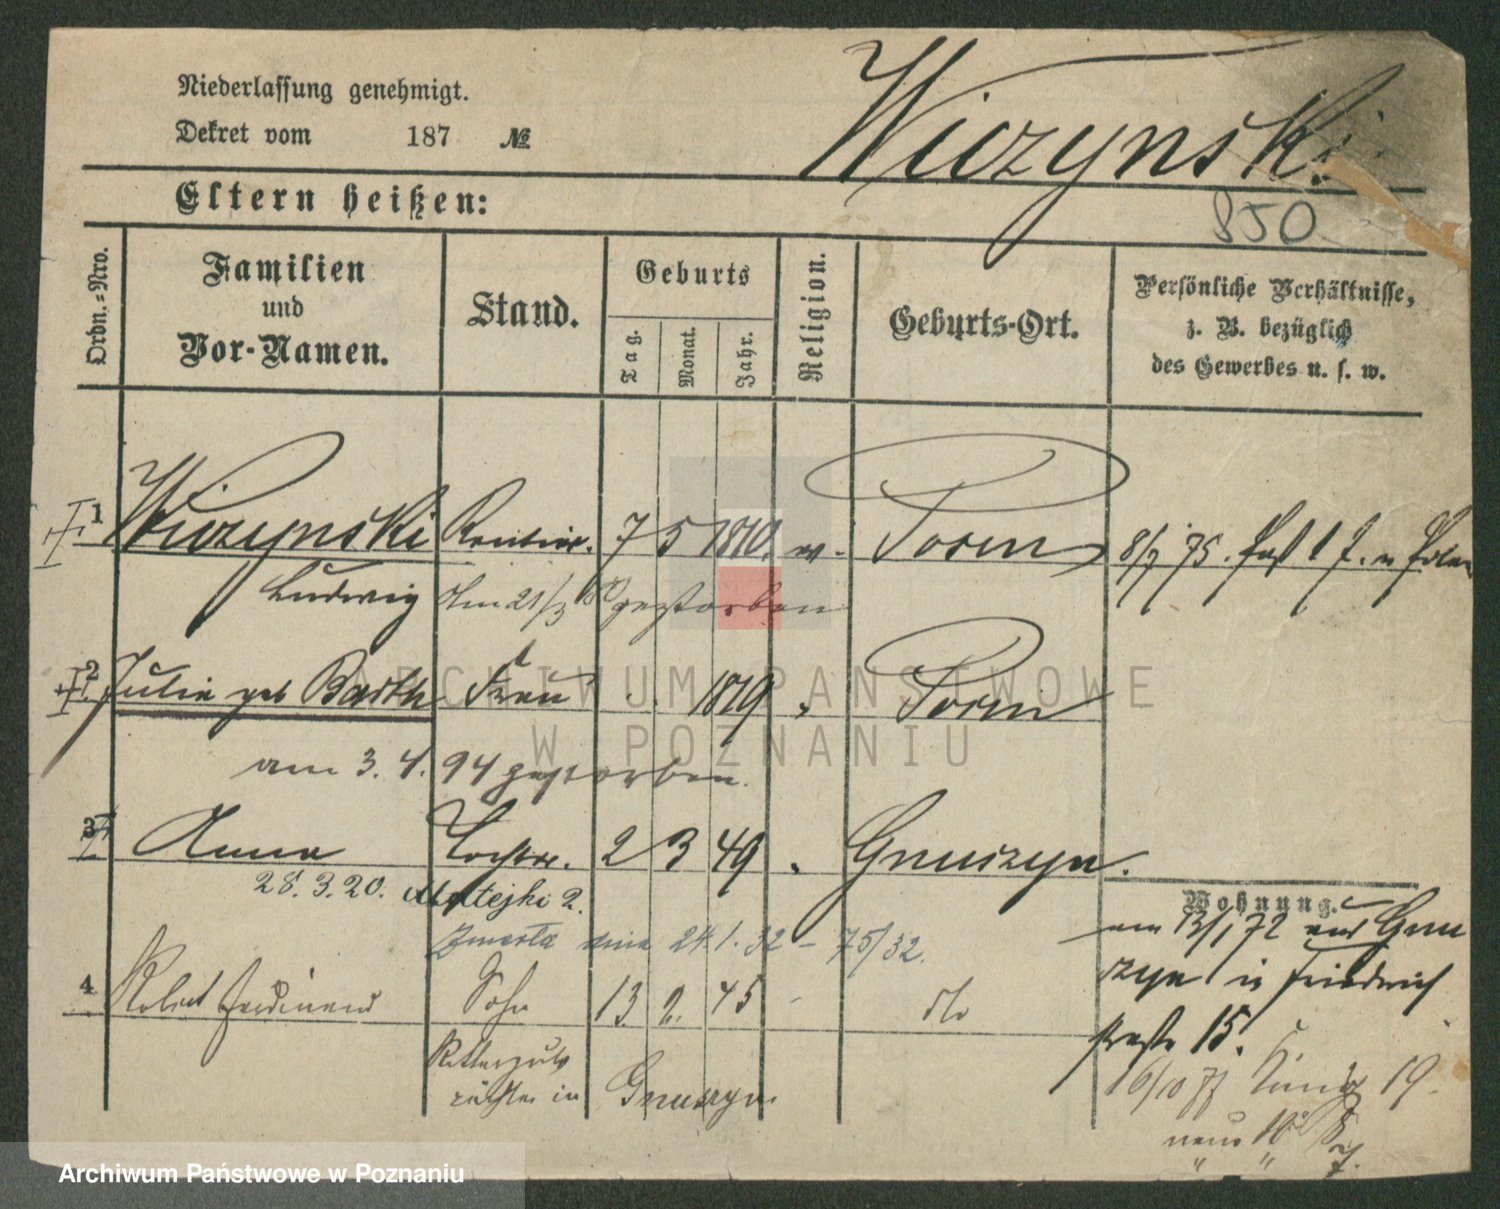 Niederlassung genehmigt.
Dekret vom 187 №
Wiczynski
Eltern heißen:
850
Ordn.-Nro.
Familien und Vor-Namen.
Stand.
Geburts
Tag. Monat. Jahr.
Religion.
Geburts-Ort.
Persönliche Verhältnisse,
z. B. bezüglich
des Gewerbes u. s. w.
1 Wiczynski Rentier. 7 5 1810. Posen 8/7 75.
Ludwig Am 21/3 gestorben
2 Julie geb Barth Frau 1819 Posen
am 3. 4. 94 gestorben.
3 Anna Tochter. 2 3 49 Gnuszyn.
28. 3. 20. Matejki 2.
Zmarła dnia 24.1.32 – 75/32.
4 Robert Ferdinand Sohn 13 2. 45 – dto
Ritterguts
in Gnuszyn.
Wohnung.
am 13/1 72 aus Gnu
szyn in Friedrich
straße 15.
16/10 77 König 19.
neue 10
ARCHIWUM PAŃSTWOWE
W POZNANIU
Archiwum Państwowe w Poznaniu